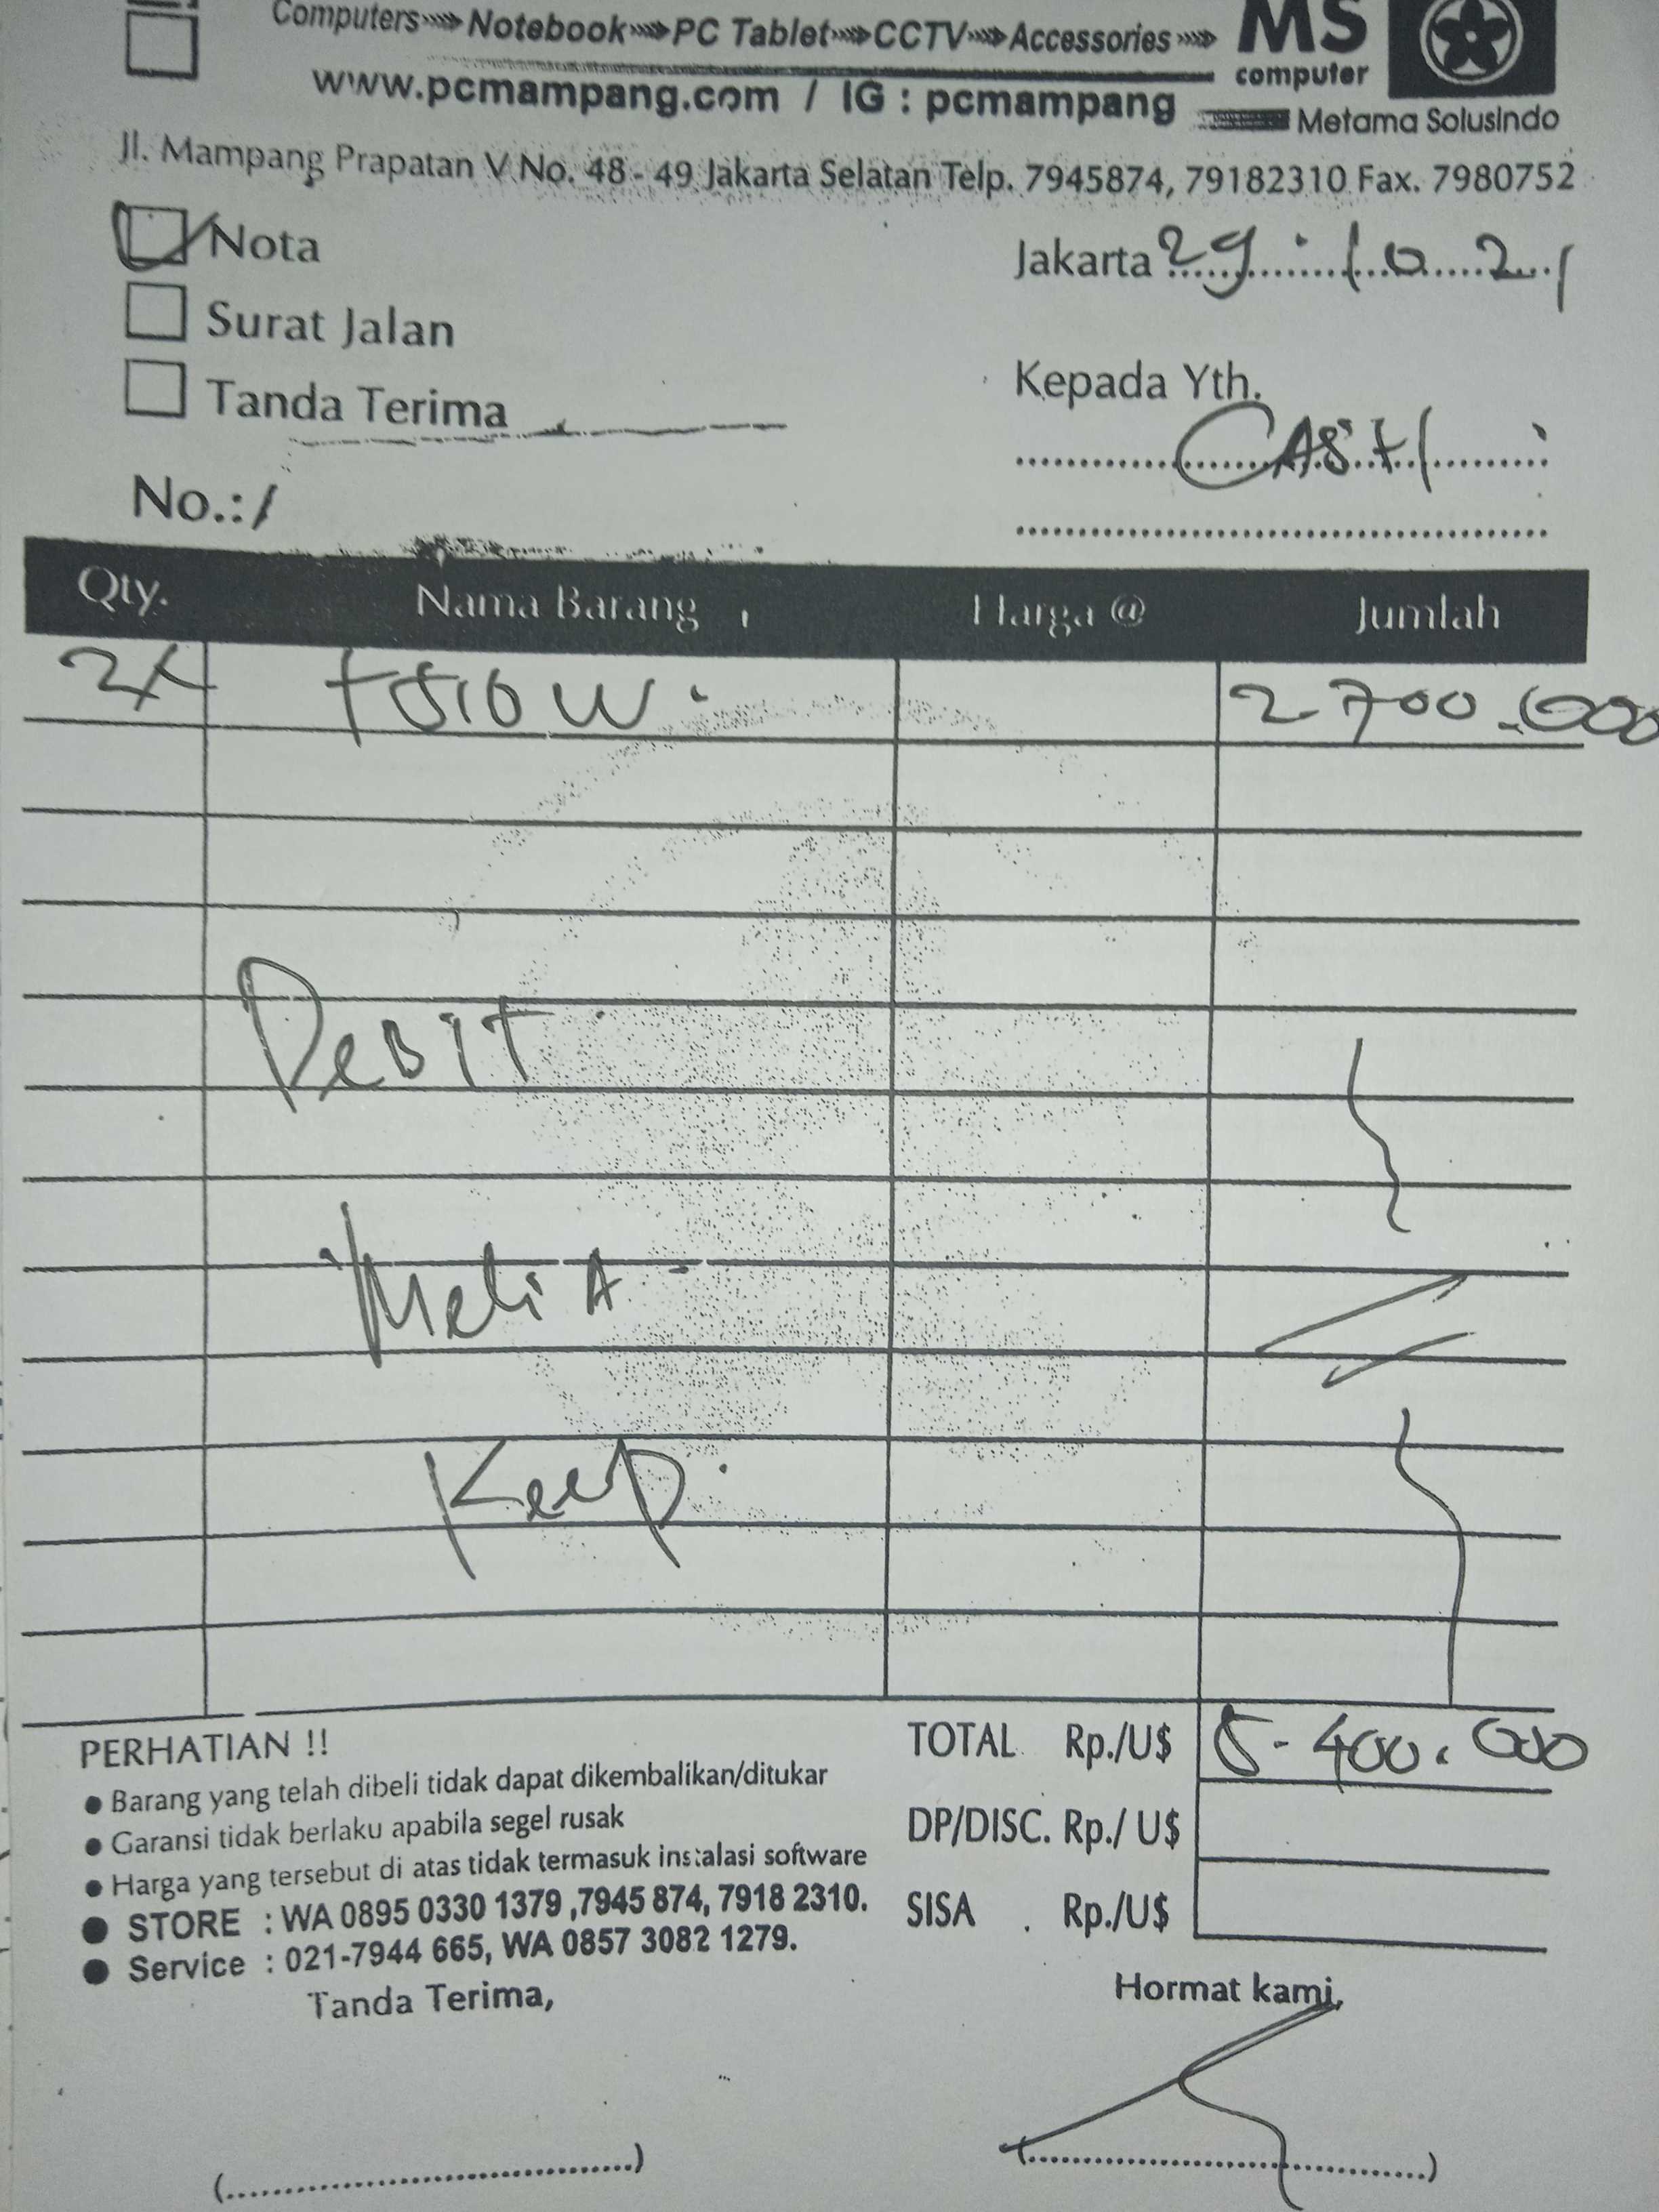 Computers Notebook PC Tablet CCTV Accessories
MS
computer
www.pcmampang.com / IG : pcmampang
Metama Solusindo
Jl. Mampang Prapatan V No. 48 - 49 Jakarta Selatan Telp. 7945874, 79182310 Fax. 7980752
Nota
Jakarta 29 . 10 . 21
Surat Jalan
Tanda Terima
Kepada Yth.
CASH
No.:/
Qty. Nama Barang Harga @ Jumlah
2X 2 700.000
DEBIT
Melia
Keep.
PERHATIAN !!
• Barang yang telah dibeli tidak dapat dikembalikan/ditukar
• Garansi tidak berlaku apabila segel rusak
• Harga yang tersebut di atas tidak termasuk instalasi software
• STORE : WA 0895 0330 1379 ,7945 874, 7918 2310.
• Service : 021-7944 665, WA 0857 3082 1279.
TOTAL Rp./U$ 5.400.000
DP/DISC. Rp./ U$
SISA . Rp./U$
Tanda Terima,
Hormat kami,
(....................................)
(....................................)